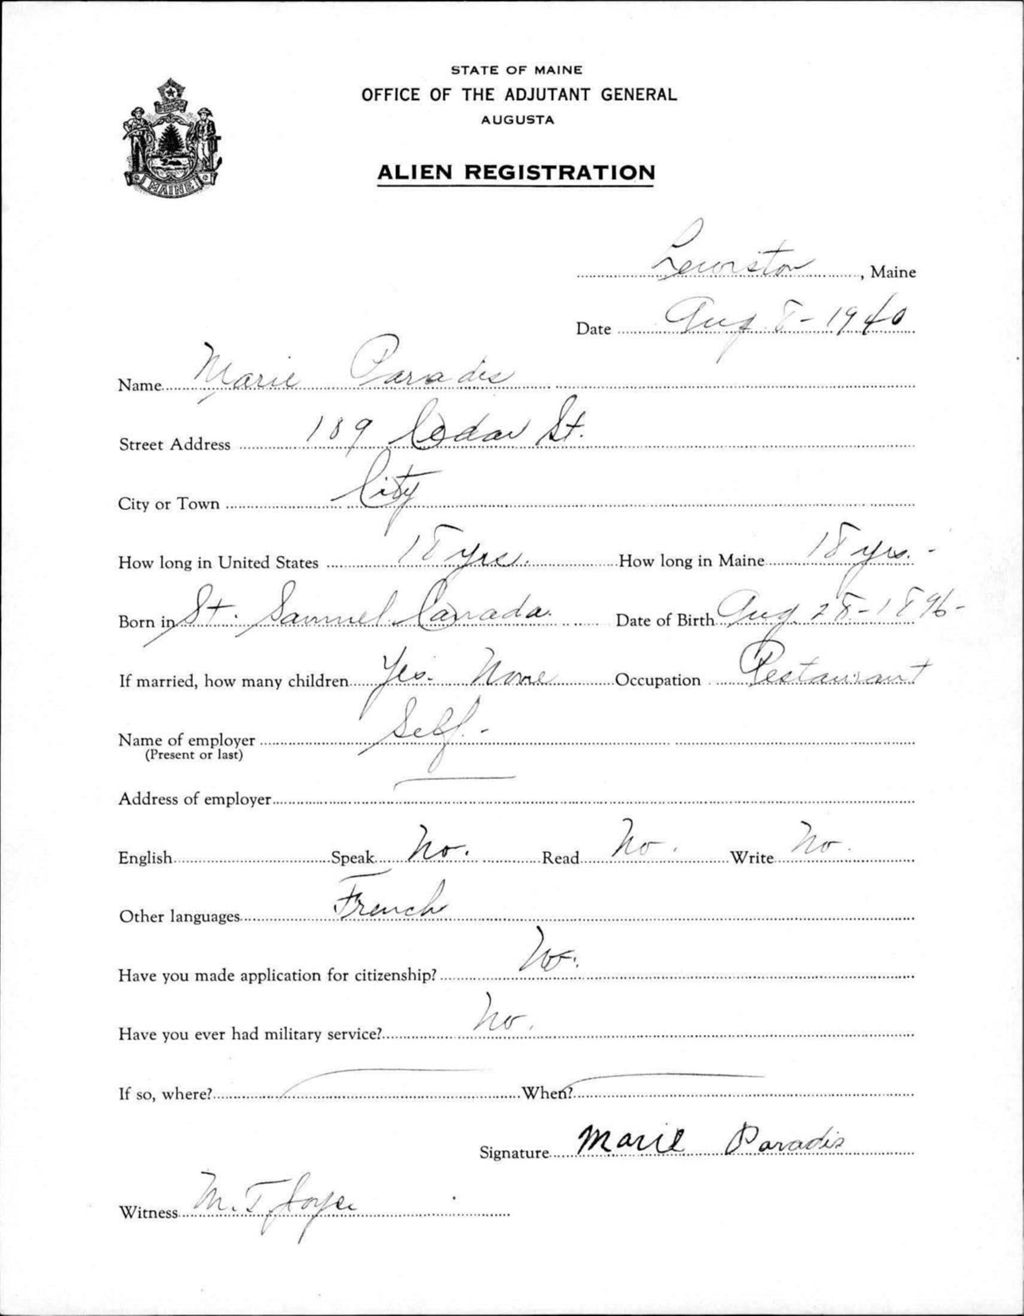 STATE OF MAINE
OFFICE OF THE ADJUTANT GENERAL
AUGUSTA
ALIEN REGISTRATION
MAINE
Lewiston, Maine
Date Aug 8-1940
Name Marie Paradis
Street Address 189 Cedar St.
City or Town City
How long in United States 18 yrs. How long in Maine 18 yrs. -
Born in St. Samuel Canada. Date of Birth Aug. 28-1896-
If married, how many children Yes. None Occupation Restaurant
Name of employer Self. -
(Present or last)
Address of employer
English Speak No. Read No. Write No.
Other languages French
Have you made application for citizenship? No.
Have you ever had military service? No.
If so, where? When?
Signature Marie Paradis
Witness M. T. Joyce